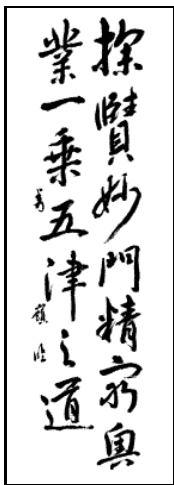 探賾妙門精窮奧
業一乘五津之道